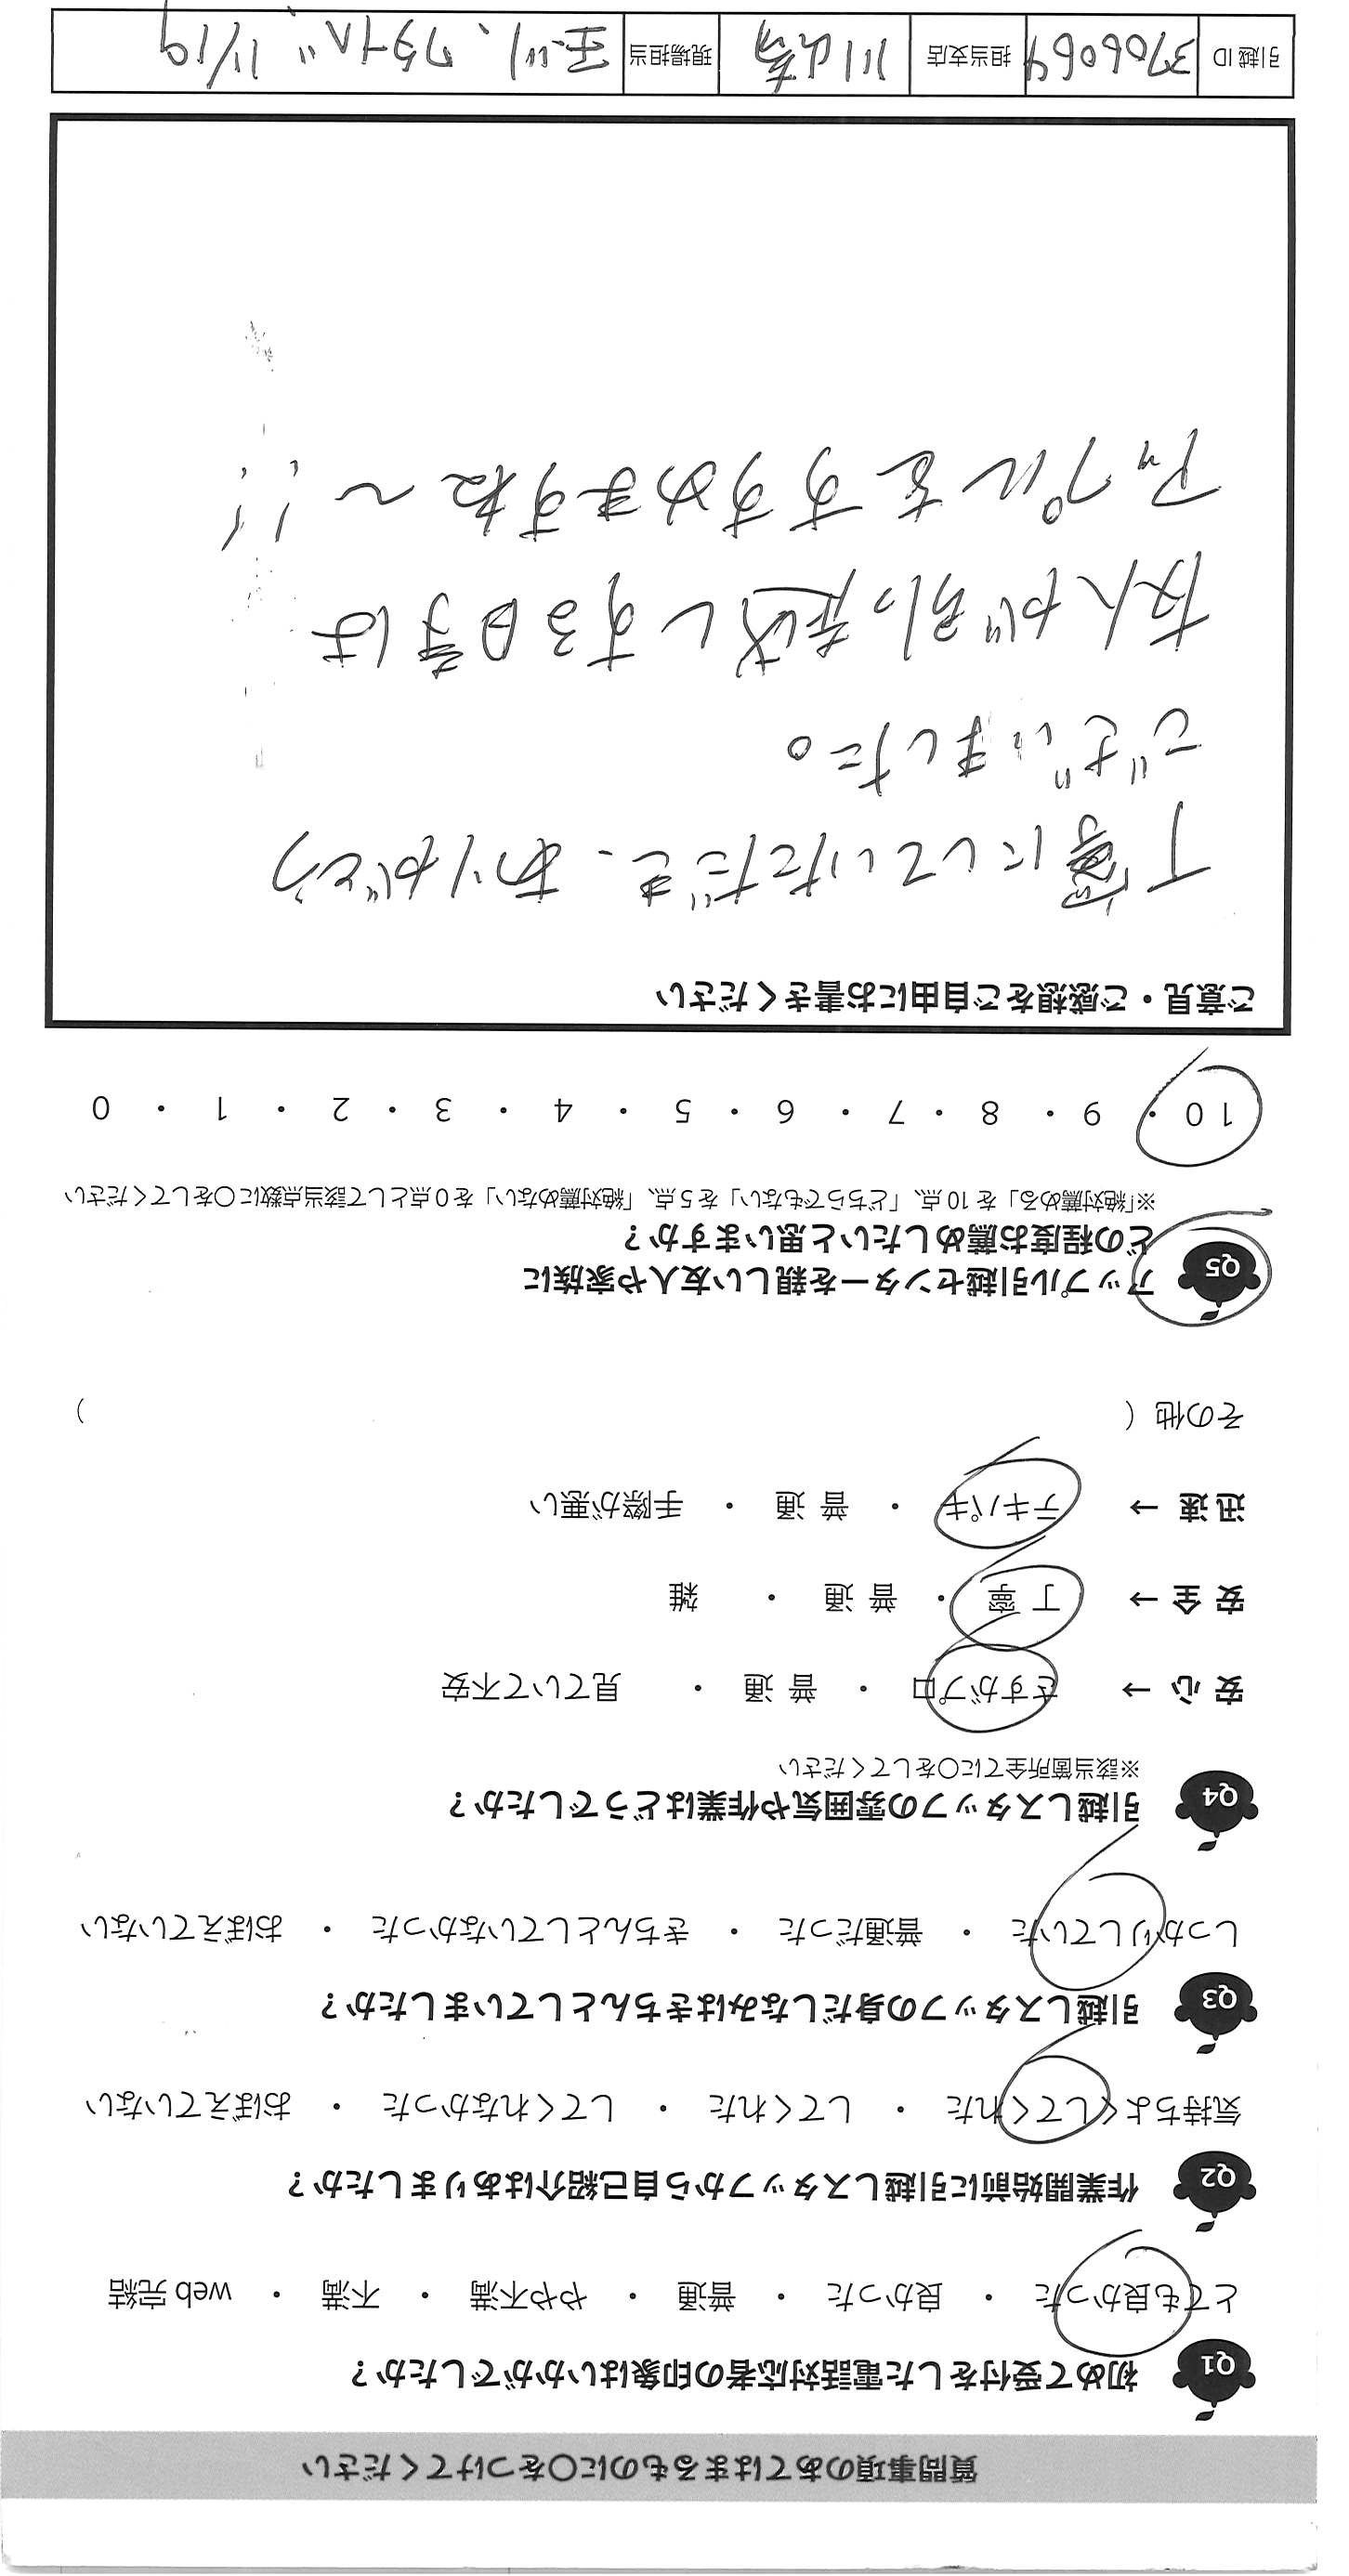 質問事項のあてはまるものに〇をつけてください
Q1 初めて受付をした電話対応者の印象はいかがでしたか？
とても良かった ・ 良かった ・ 普通 ・ やや不満 ・ 不満 ・ web 完結
Q2 作業開始前に引越しスタッフから自己紹介はありましたか？
気持ちよくしてくれた ・ してくれた ・ してくれなかった ・ おぼえていない
Q3 引越しスタッフの身だしなみはきちんとしていましたか？
しっかりしていた ・ 普通だった ・ きちんとしていなかった ・ おぼえていない
Q4 引越しスタッフの雰囲気や作業はどうでしたか？
※該当箇所全てに〇をしてください
安 心 → さすがプロ ・ 普 通 ・ 見ていて不安
安 全 → 丁 寧 ・ 普 通 ・ 雑
迅 速 → テキパキ ・ 普 通 ・ 手際が悪い
その他（ ）
Q5 アップル引越センターを親しい友人や家族に
どの程度お薦めしたいと思いますか？
※「絶対薦める」を 10 点、「どちらでもない」を 5 点、「絶対薦めない」を 0 点として該当点数に〇をしてください
10 ・ 9 ・ 8 ・ 7 ・ 6 ・ 5 ・ 4 ・ 3 ・ 2 ・ 1 ・ 0
ご意見・ご感想をご自由にお書きください
丁寧にしていただき、ありがとう
ございました。
友人が引っ越しする時は
アップルをすすめますね〜!!
引越 ID 3706064 担当支店 川崎 現場担当 玉川、 11/19